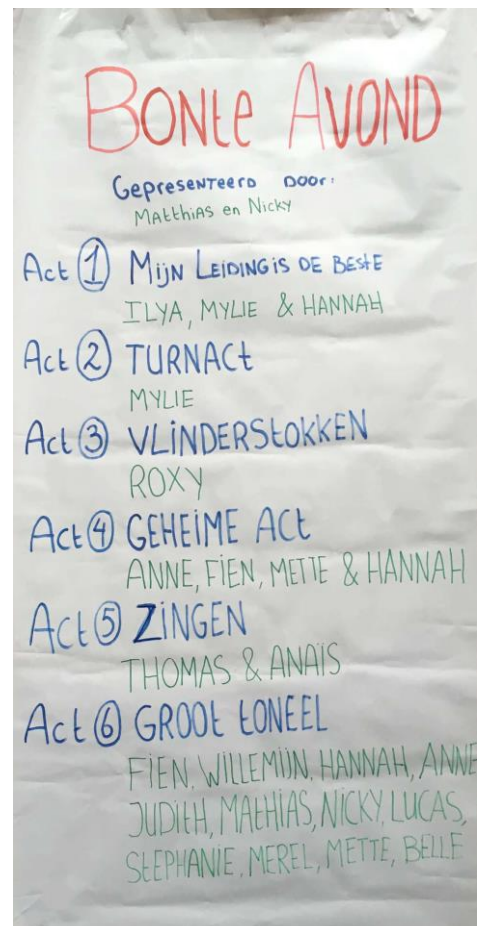 BONte AVOND
GepreseNTeerD DOOR:
MatthiAS en Nicky
Act 1 MijN LEiDiNG iS DE BEStE
ILYA, MYLIE & HANNAH
Act 2 TURNACt
MYLIE
Act 3 VLiNDERStOKKEN
ROXY
Act 4 GEHEiME ACt
ANNE, FiEN, METTE & HANNAH
Act 5 ZiNGEN
THOMAS & ANAÏS
Act 6 GROOt tONEEL
FiEN, WILLEMIJN, HANNAH, ANNE
JUDitH, MAtHiAS, NiCKY, LUCAS,
StEPHANiE, MEREL, METTE, BELLE